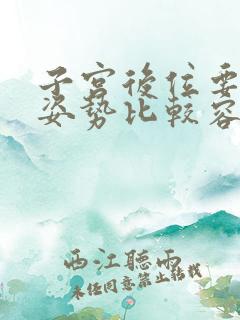 子宮後位要
姿勢比較容
西江聽雨
未经同意禁止转载